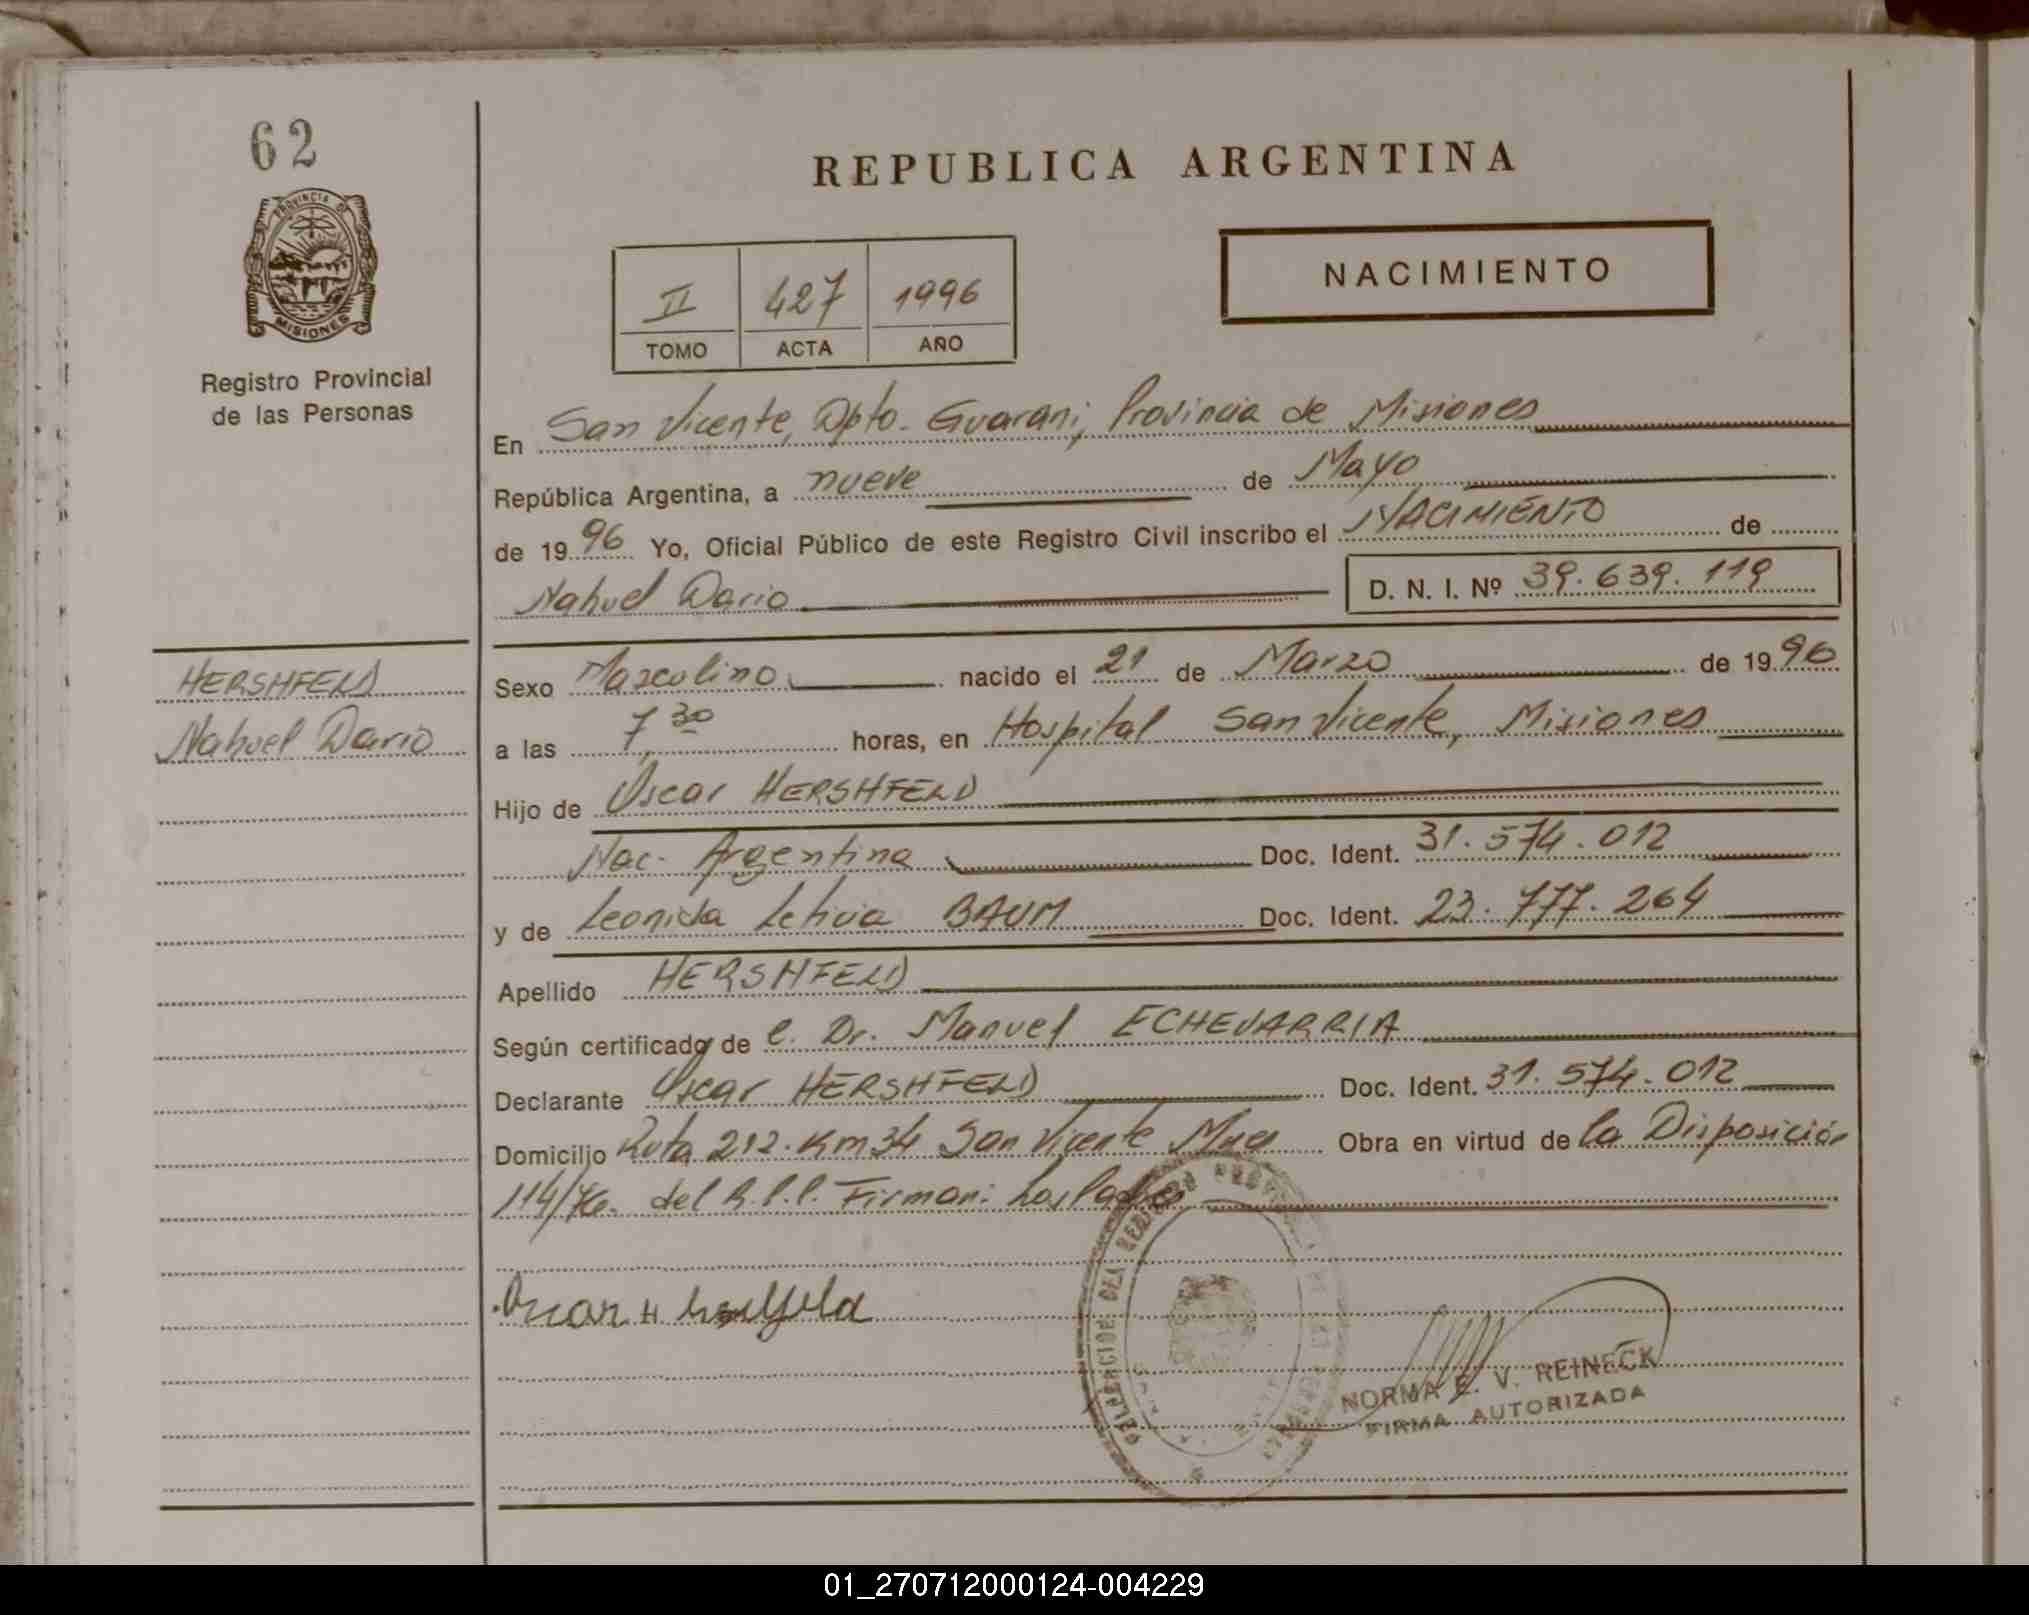 62
PROVINCIA DE
MISIONES
Registro Provincial
de las Personas
REPUBLICA ARGENTINA
NACIMIENTO
II 427 1996
TOMO ACTA AÑO
En San Vicente, Dpto. Guarani, Provincia de Misiones
República Argentina, a nueve de Mayo
de 1996 Yo, Oficial Público de este Registro Civil inscribo el NACIMIENTO de
Nahuel Dario D. N. I. Nº 39.639.119
HERSHFELD
Nahuel Dario
Sexo Masculino nacido el 21 de Marzo de 1996
a las 7,30 horas, en Hospital San Vicente, Misiones
Hijo de Oscar HERSHFELD
Nac. Argentina Doc. Ident. 31.574.012
y de Leonida Leticia BAUM Doc. Ident. 23.777.264
Apellido HERSHFELD
Según certificado de C. Dr. Manuel ECHEVARRIA
Declarante Oscar HERSHFELD Doc. Ident. 31.574.012
Domicilio Ruta 212. Km 34 San Vicente Mnes Obra en virtud de la Disposición
114/76. del R.P.P. Firman: Los Padres
Oscar H
NORMA E. V. REINECK
FIRMA AUTORIZADA
01_270712000124-004229